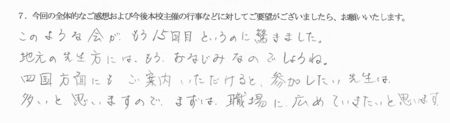 7．今回の全体的なご感想および今後本校主催の行事などに対してご要望がございましたら、お願いいたします。
このような会が、もう15回目というのに驚きました。
地元の先生方には、もう、おなじみなのでしょうね。
四国方面にもご案内いただけると、参加したい先生は
多いと思いますので、まずは、職場に、広めていきたいと思います